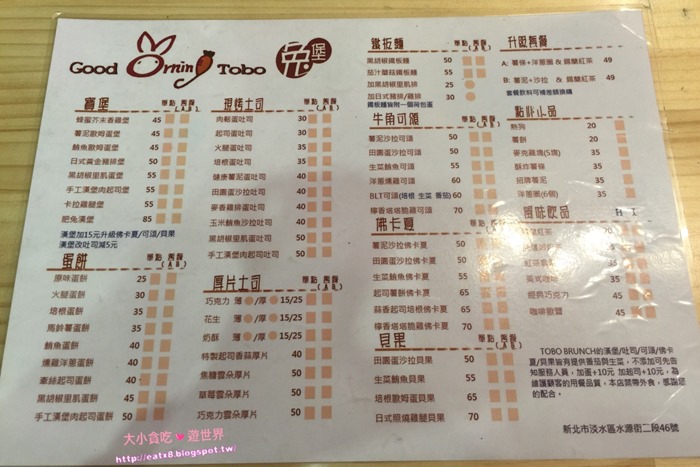 Good Ornin Tobo 兔堡
寶堡 單點 套餐 (A.B)
蜂蜜芥末香雞堡 45
薯泥歐姆蛋堡 45
鮪魚歐姆蛋堡 45
日式黃金豬排堡 50
黑胡椒里肌蛋堡 55
手工漢堡肉起司堡 55
卡拉雞腿堡 55
肥兔漢堡 85
漢堡加15元升級佛卡夏/可頌/貝果
漢堡改吐司減5元
蛋餅 單點 套餐 (A.B)
原味蛋餅 25
火腿蛋餅 30
培根蛋餅 35
馬鈴薯蛋餅 40
鮪魚蛋餅 40
燻雞洋蔥蛋餅 40
牽絲起司蛋餅 40
黑胡椒里肌蛋餅 40
手工漢堡肉起司蛋餅 50
現烤土司 單點 套餐 (A.B)
肉鬆蛋吐司 30
起司蛋吐司 30
火腿蛋吐司 30
培根蛋吐司 30
健康薯泥蛋吐司 35
田園蛋沙拉吐司
麥香雞排蛋吐司
玉米鮪魚沙拉吐司 40
黑胡椒里肌蛋吐司 50
手工漢堡肉起司蛋吐司 50
厚片土司 單點 套餐 (A.B)
巧克力 薄/厚 15/25
花生 薄/厚 15/25
奶酥 薄/厚 15/25
特製起司香蒜厚片 40
焦糖雲朵厚片 40
草莓雲朵厚片 40
巧克力雲朵厚片 40
鐵板麵 單點 套餐
黑胡椒鐵板麵 50
茄汁蘑菇鐵板麵 55
加黑胡椒里肌 25
加日式豬排/雞排 30
鐵板麵皆附一個荷包蛋
牛角可頌 單點 套餐 (A.B)
薯泥沙拉可頌 50
田園蛋沙拉可頌 50
生菜鮪魚可頌 60
洋蔥燻雞可頌 60
BLT可頌(培根 生菜 番茄) 60
檸香塔塔脆雞可頌 70
佛卡夏 單點 套餐 (A.B)
薯泥沙拉佛卡夏
田園蛋沙拉佛卡夏
生菜鮪魚佛卡夏 60
起司薯餅佛卡夏 65
蒜香起司培根佛卡夏 65
檸香塔塔脆雞佛卡夏 70
貝果 單點 套餐 (A.B)
田園蛋沙拉貝果 50
生菜鮪魚貝果 55
培根歐姆蛋貝果 60
日式照燒雞腿貝果 70
升級套餐
A: 薯條+洋蔥圈 & 錫蘭紅茶 49
B: 薯泥+沙拉 & 錫蘭紅茶 49
套餐飲料可補差額換購
點心小品
熱狗 20
薯餅 20
麥克雞塊(5塊) 35
酥炸薯條 35
招牌薯泥 35
洋蔥圈(6個) 35
風味飲品
經典巧克力 45
咖啡歐蕾 50
TOBO BRUNCH的漢堡/吐司/可頌/佛卡
夏/貝果皆有提供番茄與生菜，不添加可先告
知服務人員，加蛋+10元 加起司+10元，為
維護顧客的用餐品質，本店禁帶外食，感謝您
的配合。
新北市淡水區水源街二段46號
大小貪吃 遊世界
http://eatx8.blogspot.tw/